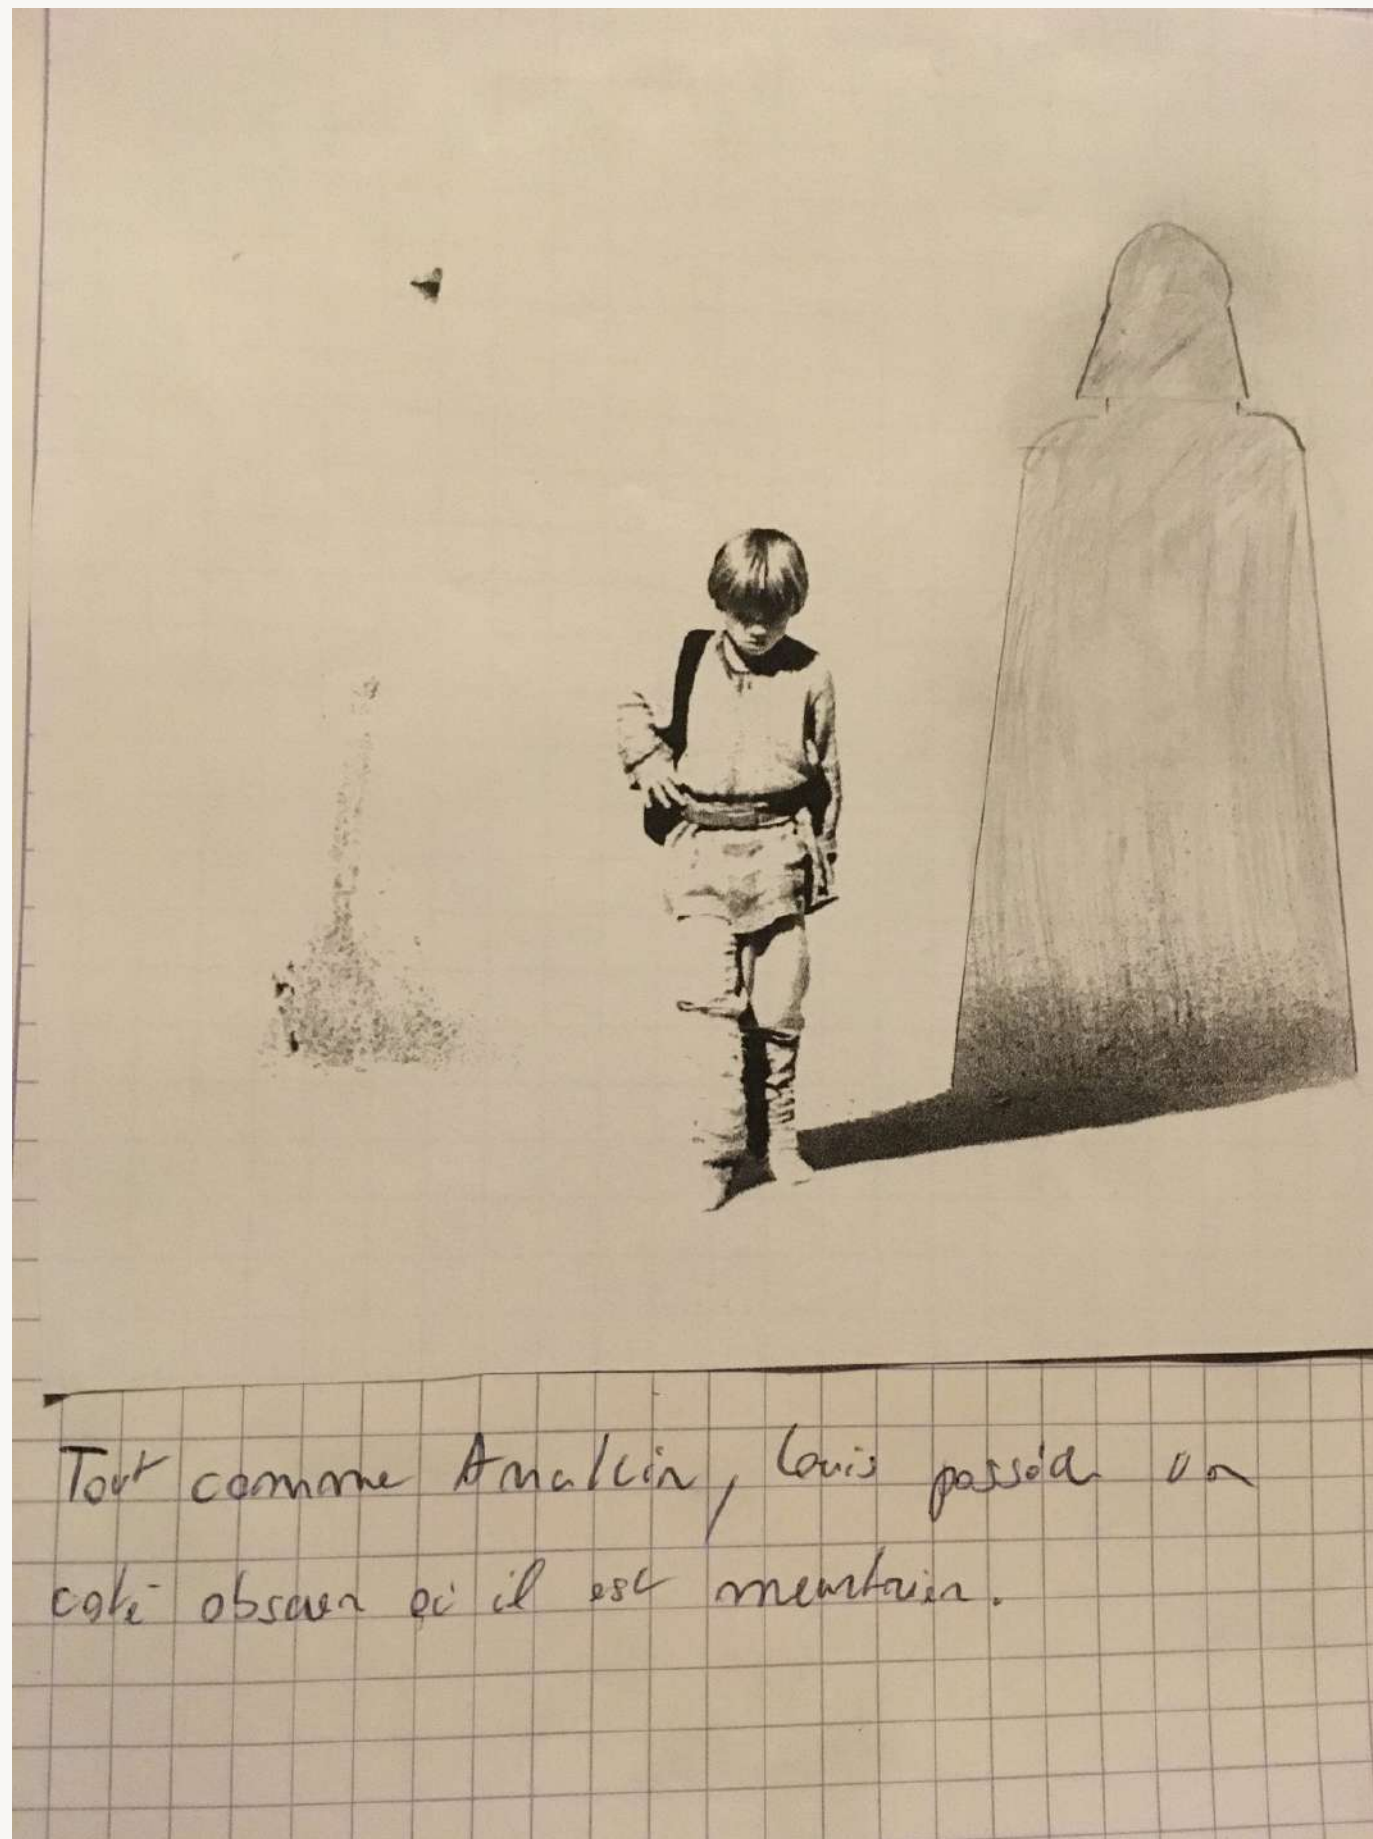 Tout comme Anakin, Louis possède un
coté obscur où il est meurtrier.